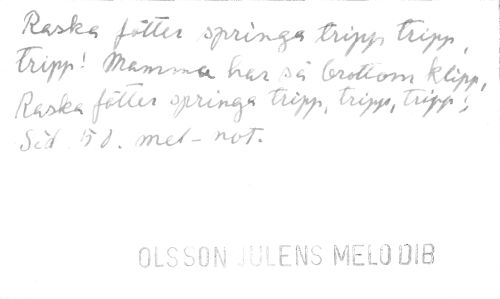 Raska fötter springa tripp, tripp,
tripp! Mamma har så brottom klipp,
Raska fötter springa tripp, tripp, tripp!
Sid 50. mel-not.
OLSSON JULENS MELODIB